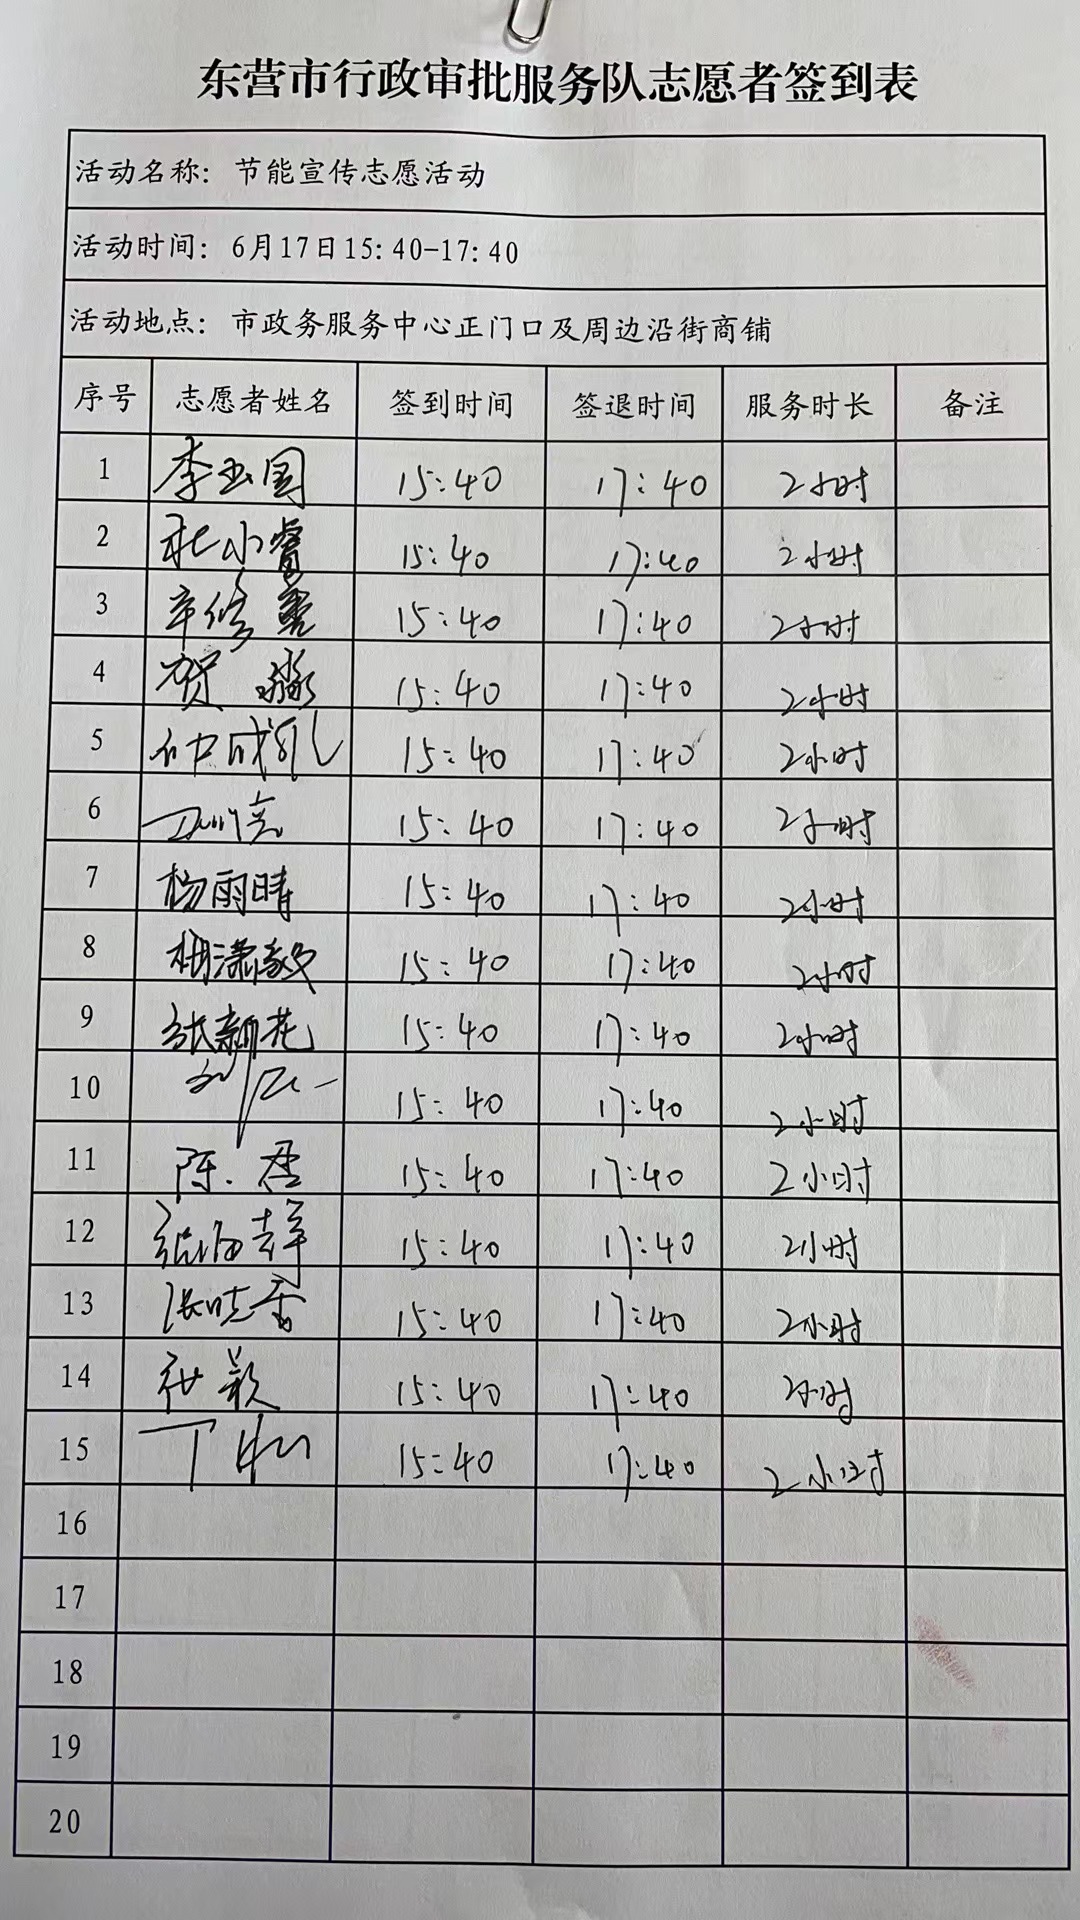 东营市行政审批服务队志愿者签到表
活动名称：节能宣传志愿活动
活动时间：6月17日15:40-17:40
活动地点：市政务服务中心正门口及周边沿街商铺
序号 志愿者姓名 签到时间 签退时间 服务时长 备注
1 李玉国 15:40 17:40 2小时
2 杜小睿 15:40 17:40 2小时
3 辛修 15:40 17:40 2小时
4 贺淼 15:40 17:40 2小时
5 仲成凯 15:40 17:40 2小时
6 15:40 17:40 2小时
7 杨雨晴 15:40 17:40 2小时
8 梅潇毅 15:40 17:40 2小时
9 张新花 15:40 17:40 2小时
10 15:40 17:40 2小时
11 陈君 15:40 17:40 2小时
12 15:40 17:40 2小时
13 张晓香 15:40 17:40 2小时
14 颖 15:40 17:40 2小时
15 丁 15:40 17:40 2小时
16
17
18
19
20